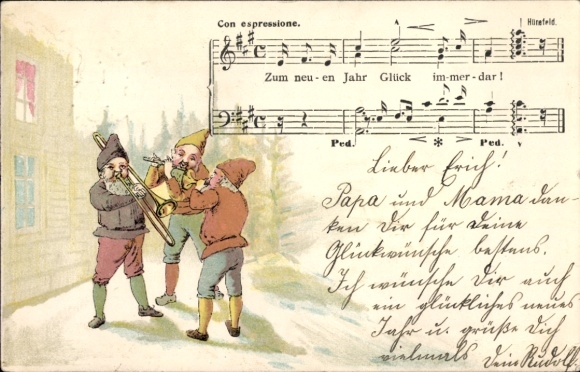 Con espressione.
Hünfeld.
Zum neu-en Jahr Glück im-mer-dar!
Ped. * Ped.
Lieber Erich!
Papa und Mama dan-
ken Dir für Deine
Glückwünsche bestens.
Ich wünsche Dir auch
ein glückliches neues
Jahr u. grüße Dich
vielmals Dein Rudolf.